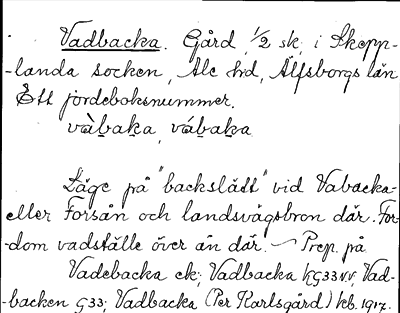 Vadbacka. Gård, 1/2 sk, i Skepp-
-landa socken, Ale hd, Älfsborgs län
Ett jordeboksnummer.
vàbaka, vábaka
Läge på "backslätt" vid Vabacka-
eller Forsån och landsvägsbron där. For-
-dom vadställe över ån där. — Prep. på
Vadebacka ek; Vadbacka kG33NV, Vad-
-backen G33; Vadbacka (Per Karlsgård) kb. 1917.